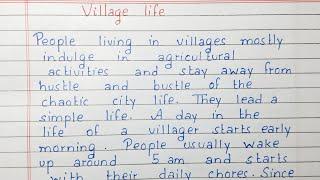 Village life
People living in villages mostly
indulge in agricultural
activities and stay away from
hustle and bustle of the
chaotic city life. They lead a
simple life. A day in the
life of a villager starts early
morning. People usually wake
up around 5 am and starts
with their daily chores. Since